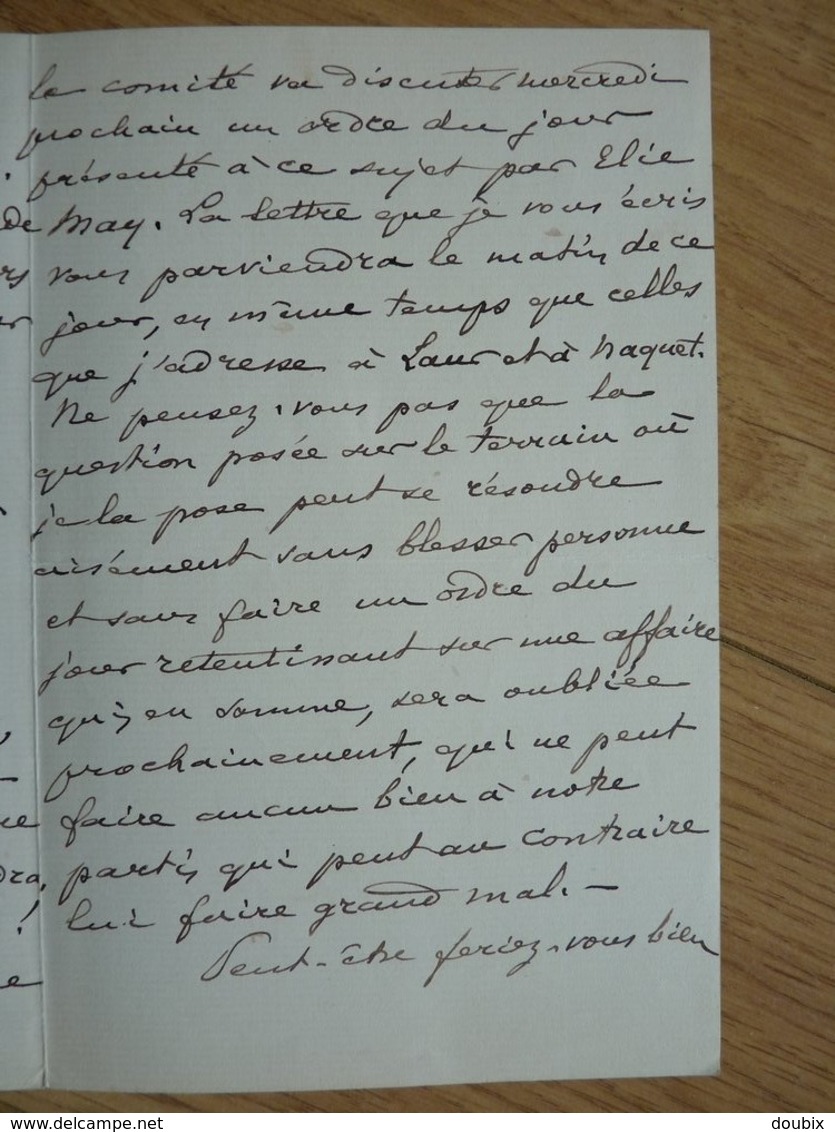 le comité va discuter mercredi
prochain un ordre du jour
présenté à ce sujet par Elie
May. La lettre que je vous écris
vous parviendra le matin de ce
jour, en même temps que celles
que j'adresse à Laur et à Naquet.
Ne pensez-vous pas que la
question posée sur le terrain où
je la pose peut se résoudre
aisément sans blesser personne
et sans faire un ordre du
jour retentissant sur une affaire
qui, en somme, sera oubliée
prochainement, qui ne peut
faire aucun bien à notre
parti, qui peut au contraire
lui faire grand mal. —
Peut-être feriez-vous bien
de
rs
dra,
!
e
delcampe.net
doubix